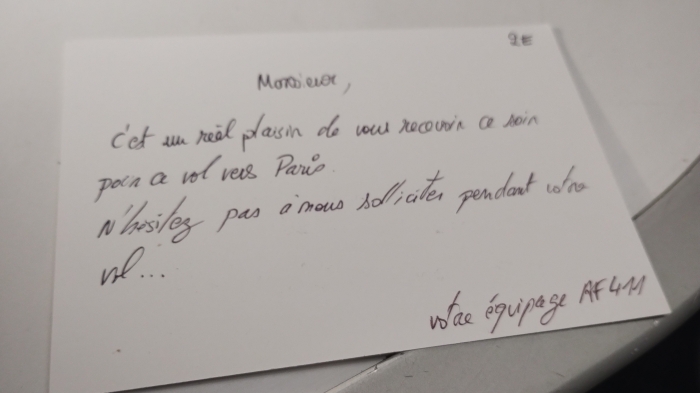 9E
Monsieur,
c'est un réel plaisir de vous recevoir ce soir
pour ce vol vers Paris.
N'hésitez pas à nous solliciter pendant votre
vol...
votre équipage AF411